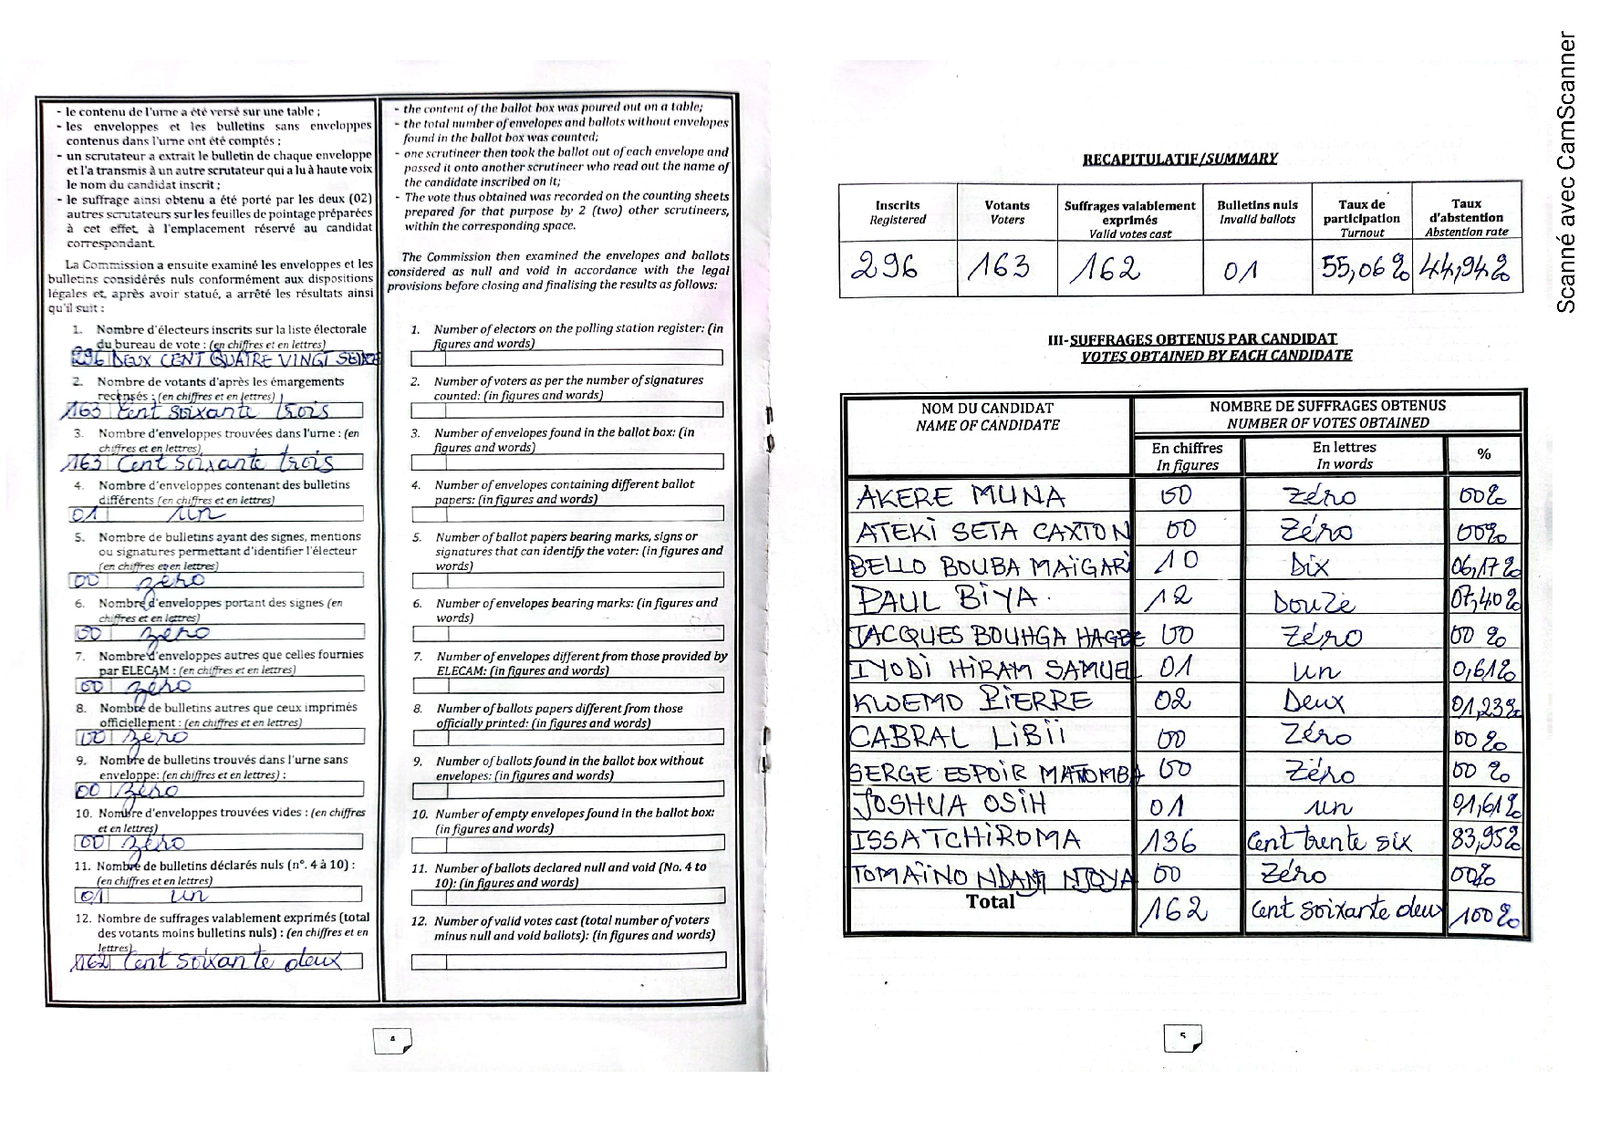 - le contenu de l'urne a été versé sur une table ;
- les enveloppes et les bulletins sans enveloppes
contenus dans l'urne ont été comptés ;
- un scrutateur a extrait le bulletin de chaque enveloppe
et l'a transmis à un autre scrutateur qui a lu à haute voix
le nom du candidat inscrit ;
- le suffrage ainsi obtenu a été porté par les deux (02)
autres scrutateurs sur les feuilles de pointage préparées
à cet effet à l'emplacement réservé au candidat
correspondant.
La Commission a ensuite examiné les enveloppes et les
bulletins considérés nuls conformément aux dispositions
légales et, après avoir statué, a arrêté les résultats ainsi
qu'il suit :
1. Nombre d'électeurs inscrits sur la liste électorale
du bureau de vote : (en chiffres et en lettres)
296 DEUX CENT QUATRE VINGT SEIZE
2. Nombre de votants d'après les émargements
recensés : (en chiffres et en lettres)
163 Cent soixante trois
3. Nombre d'enveloppes trouvées dans l'urne : (en
chiffres et en lettres)
163 Cent soixante trois
4. Nombre d'enveloppes contenant des bulletins
différents (en chiffres et en lettres)
01 un
5. Nombre de bulletins ayant des signes, mentions
ou signatures permettant d'identifier l'électeur
(en chiffres et en lettres)
00 zéro
6. Nombre d'enveloppes portant des signes (en
chiffres et en lettres)
00 zéro
7. Nombre d'enveloppes autres que celles fournies
par ELECAM : (en chiffres et en lettres)
00 zéro
8. Nombre de bulletins autres que ceux imprimés
officiellement : (en chiffres et en lettres)
00 zéro
9. Nombre de bulletins trouvés dans l'urne sans
enveloppe: (en chiffres et en lettres) :
00 zéro
10. Nombre d'enveloppes trouvées vides : (en chiffres
et en lettres)
00 zéro
11. Nombre de bulletins déclarés nuls (n°. 4 à 10) :
(en chiffres et en lettres)
01 un
12. Nombre de suffrages valablement exprimés (total
des votants moins bulletins nuls) : (en chiffres et en
lettres)
162 Cent soixante deux
- the content of the ballot box was poured out on a table;
- the total number of envelopes and ballots without envelopes
found in the ballot box was counted;
- one scrutineer then took the ballot out of each envelope and
passed it onto another scrutineer who read out the name of
the candidate inscribed on it;
- The vote thus obtained was recorded on the counting sheets
prepared for that purpose by 2 (two) other scrutineers,
within the corresponding space.
The Commission then examined the envelopes and ballots
considered as null and void in accordance with the legal
provisions before closing and finalising the results as follows:
1. Number of electors on the polling station register: (in
figures and words)
2. Number of voters as per the number of signatures
counted: (in figures and words)
3. Number of envelopes found in the ballot box: (in
figures and words)
4. Number of envelopes containing different ballot
papers: (in figures and words)
5. Number of ballot papers bearing marks, signs or
signatures that can identify the voter: (in figures and
words)
6. Number of envelopes bearing marks: (in figures and
words)
7. Number of envelopes different from those provided by
ELECAM: (in figures and words)
8. Number of ballots papers different from those
officially printed: (in figures and words)
9. Number of ballots found in the ballot box without
envelopes: (in figures and words)
10. Number of empty envelopes found in the ballot box:
(in figures and words)
11. Number of ballots declared null and void (No. 4 to
10): (in figures and words)
12. Number of valid votes cast (total number of voters
minus null and void ballots): (in figures and words)
4
RECAPITULATIF/SUMMARY
Inscrits Votants Suffrages valablement Bulletins nuls Taux de Taux
Registered Voters exprimés Invalid ballots participation d'abstention
Valid votes cast Turnout Abstention rate
296 163 162 01 55,06% 44,94%
III- SUFFRAGES OBTENUS PAR CANDIDAT
VOTES OBTAINED BY EACH CANDIDATE
NOM DU CANDIDAT NOMBRE DE SUFFRAGES OBTENUS
NAME OF CANDIDATE NUMBER OF VOTES OBTAINED
En chiffres En lettres %
In figures In words
AKERE MUNA 00 zéro 00%
ATEKI SETA CAXTON 00 Zéro 00%
BELLO BOUBA MAIGARI 10 Dix 06,17%
PAUL BIYA. 12 Douze 07,40%
JACQUES BOUHGA HAGBE 00 Zéro 00 %
IYODI HIRAM SAMUEL 01 un 0,61%
KWEMO PIERRE 02 Deux 01,23%
CABRAL LIBII 00 Zéro 00 %
SERGE ESPOIR MATOMBA 00 Zéro 00 %
JOSHUA OSIH 01 un 01,61%
ISSA TCHIROMA 136 Cent trente six 83,95%
TOMAÏNO NDAM NJOYA 00 Zéro 00%
Total 162 Cent soixante deux 100%
5
Scanné avec CamScanner